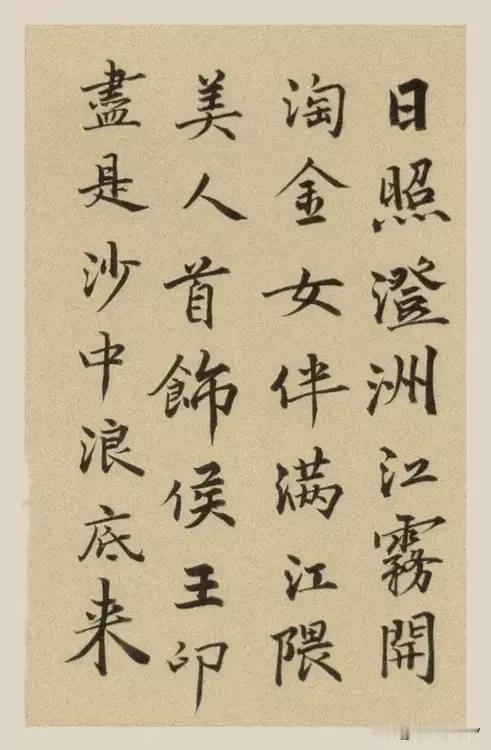 日照澄洲江霧開
淘金女伴满江隈
美人首飾侯王印
盡是沙中浪底来